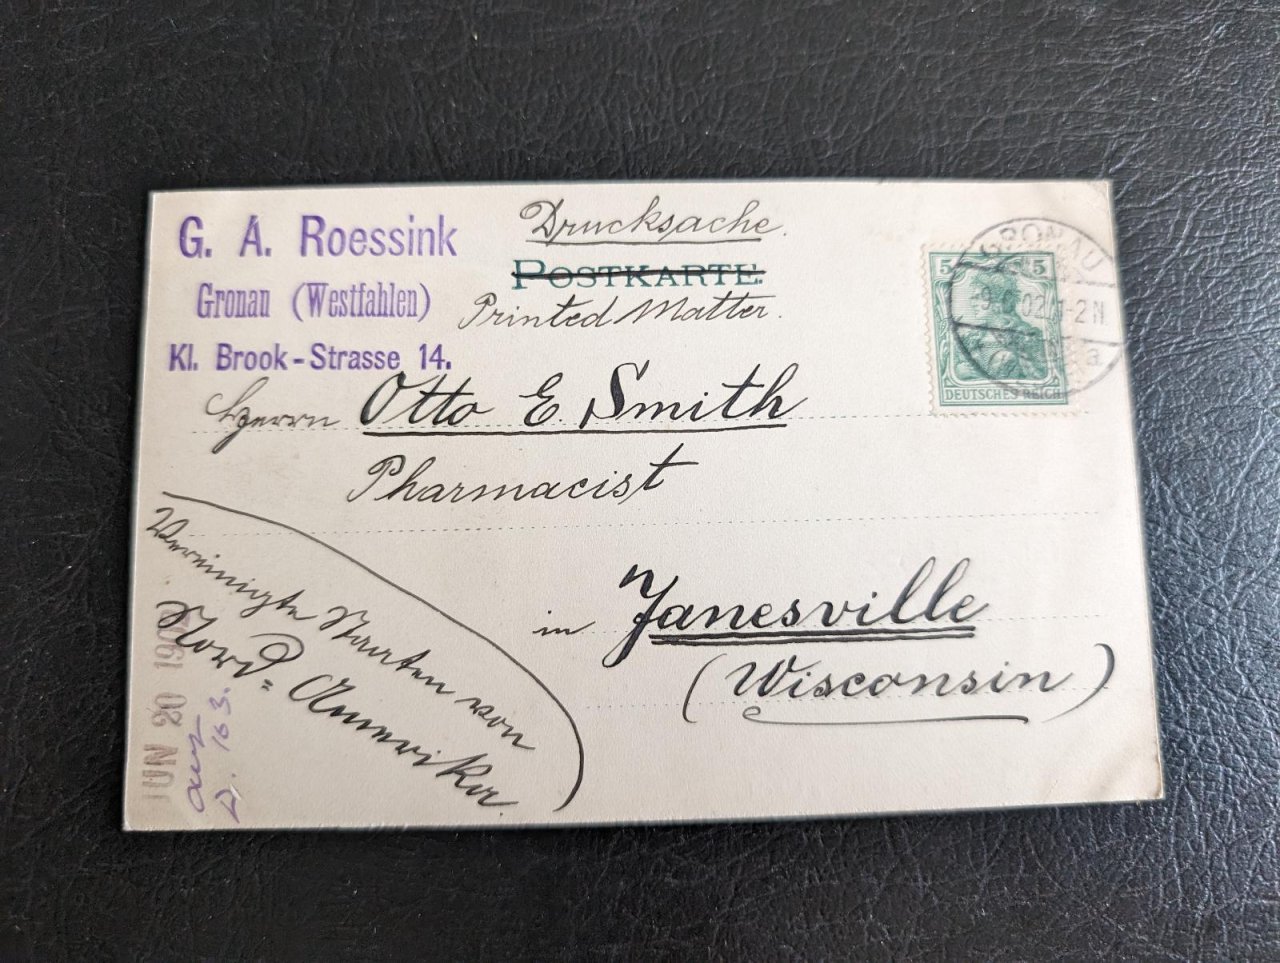 G. A. Roessink
Gronau (Westfahlen)
Kl. Brook-Strasse 14.
Drucksache.
POSTKARTE.
Printed Matter.
5 5
DEUTSCHES REICH
GRONAU
02 1-2N.
a
Herrn Otto E. Smith
Pharmacist
in Janesville
(Wisconsin)
Vereinigte Staaten von
Nord-Amerika.
JUN 20 190
163.